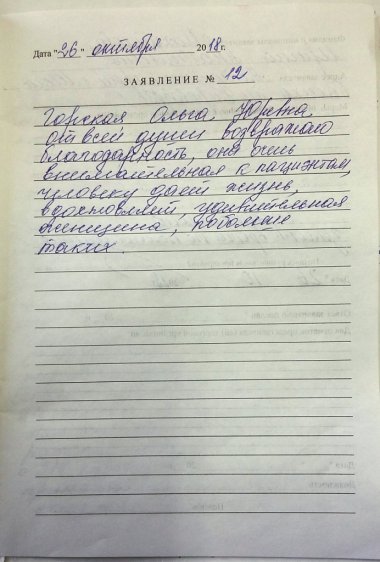 Дата "26" октября 2018 г.
ЗАЯВЛЕНИЕ № 12
Горская Ольга Юрьевна,
от всей души возвращаю
благодарность, она очень
внимательная к пациентам,
человеку дает жизнь,
вдохновляет, удивительная
женщина, побольше
таких.